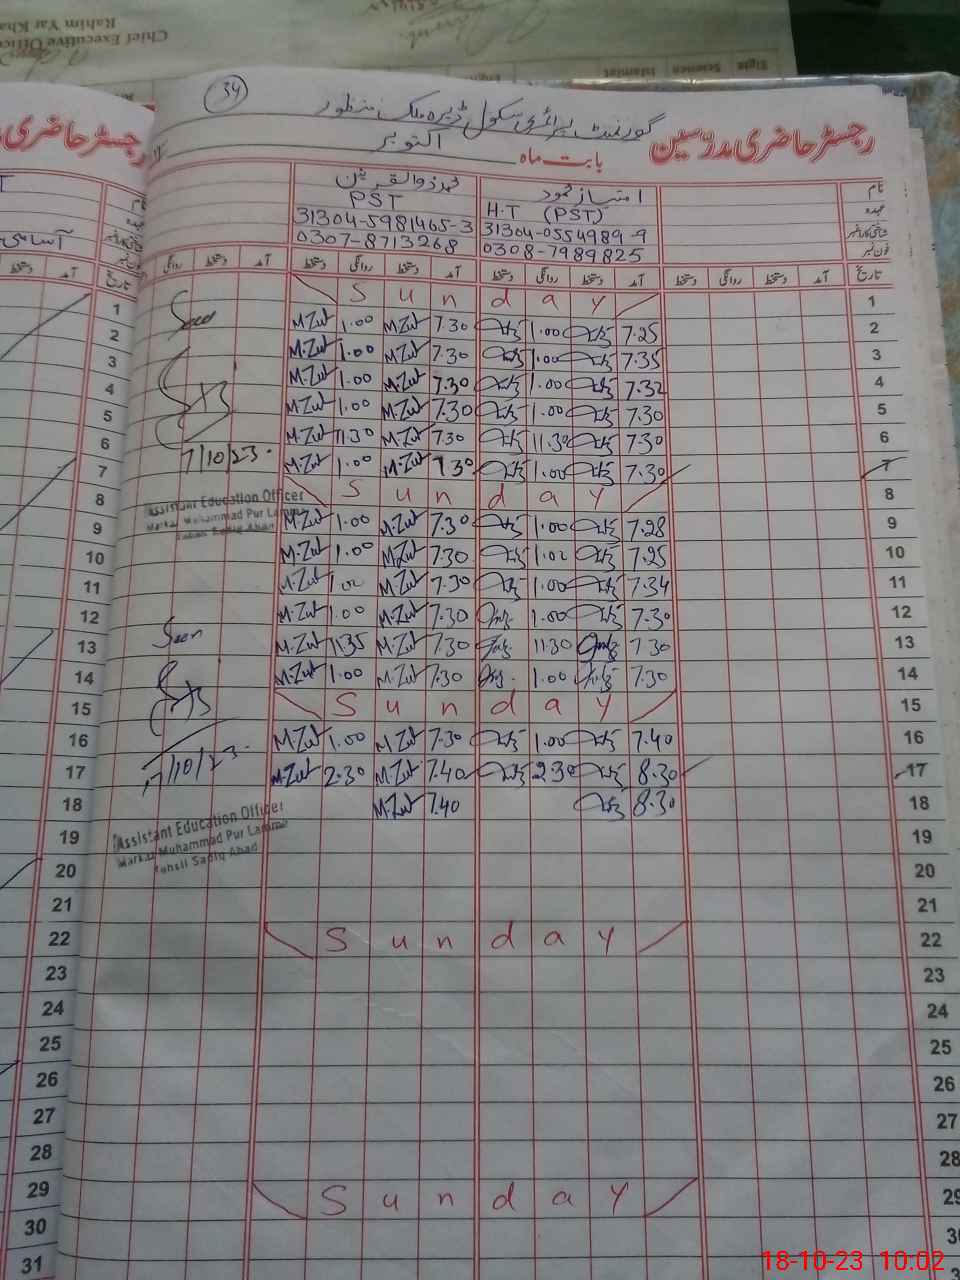 34
گورنمنٹ پرائمری سکول ڈیرہ ملک منظور
رجسٹر حاضری مدرسین
بابت ماہ اکتوبر
نام
عہدہ
شناختی کارڈ نمبر
فون نمبر
امتیاز محمود
H.T (PST)
31304-0554989-9
0308-7989825
محمد ذوالقرنین
PST
31304-5981465-3
0307-8713268
تاریخ آمد دستخط روانگی دستخط آمد دستخط روانگی دستخط آمد دستخط روانگی دستخط آمد دستخط روانگی
1 Sunday 1
2 M.Zul 1.00 M.Zul 7.30 1.00 7.25 2
3 M.Zul 1.00 M.Zul 7.30 1.00 7.35 3
4 M.Zul 1.00 M.Zul 7.30 1.00 7.32 4
5 M.Zul 1.00 M.Zul 7.30 1.00 7.30 5
6 M.Zul 11.30 M.Zul 7.30 11.30 7.30 6
7 M.Zul 1.00 M.Zul 7.30 1.00 7.30 7
8 Sunday 8
9 M.Zul 1.00 M.Zul 7.30 1.00 7.28 9
10 M.Zul 1.00 M.Zul 7.30 1.02 7.25 10
11 M.Zul 1.02 M.Zul 7.30 1.00 7.34 11
12 M.Zul 1.00 M.Zul 7.30 1.00 7.30 12
13 M.Zul 11.35 M.Zul 7.30 11.30 7.30 13
14 M.Zul 1.00 M.Zul 7.30 1.00 7.30 14
15 Sunday 15
16 M.Zul 1.00 M.Zul 7.30 1.00 7.40 16
17 M.Zul 2.30 M.Zul 7.40 2.30 8.30 17
18 M.Zul 7.40 8.30 18
19 19
20 20
21 21
22 Sunday 22
23 23
24 24
25 25
26 26
27 27
28 28
29 Sunday 29
30
31
Seen
7/10/23
Assistant Education Officer
Markaz Muhammad Pur Lamma
Tehsil Sadiq Abad
Seen
17/10/23
Assistant Education Officer
Markaz Muhammad Pur Lamma
Tehsil Sadiq Abad
رجسٹر حاضری
آسامی
Chief Executive Office
Rahim Yar Kha
Islamiat
Science
18-10-23 10:02